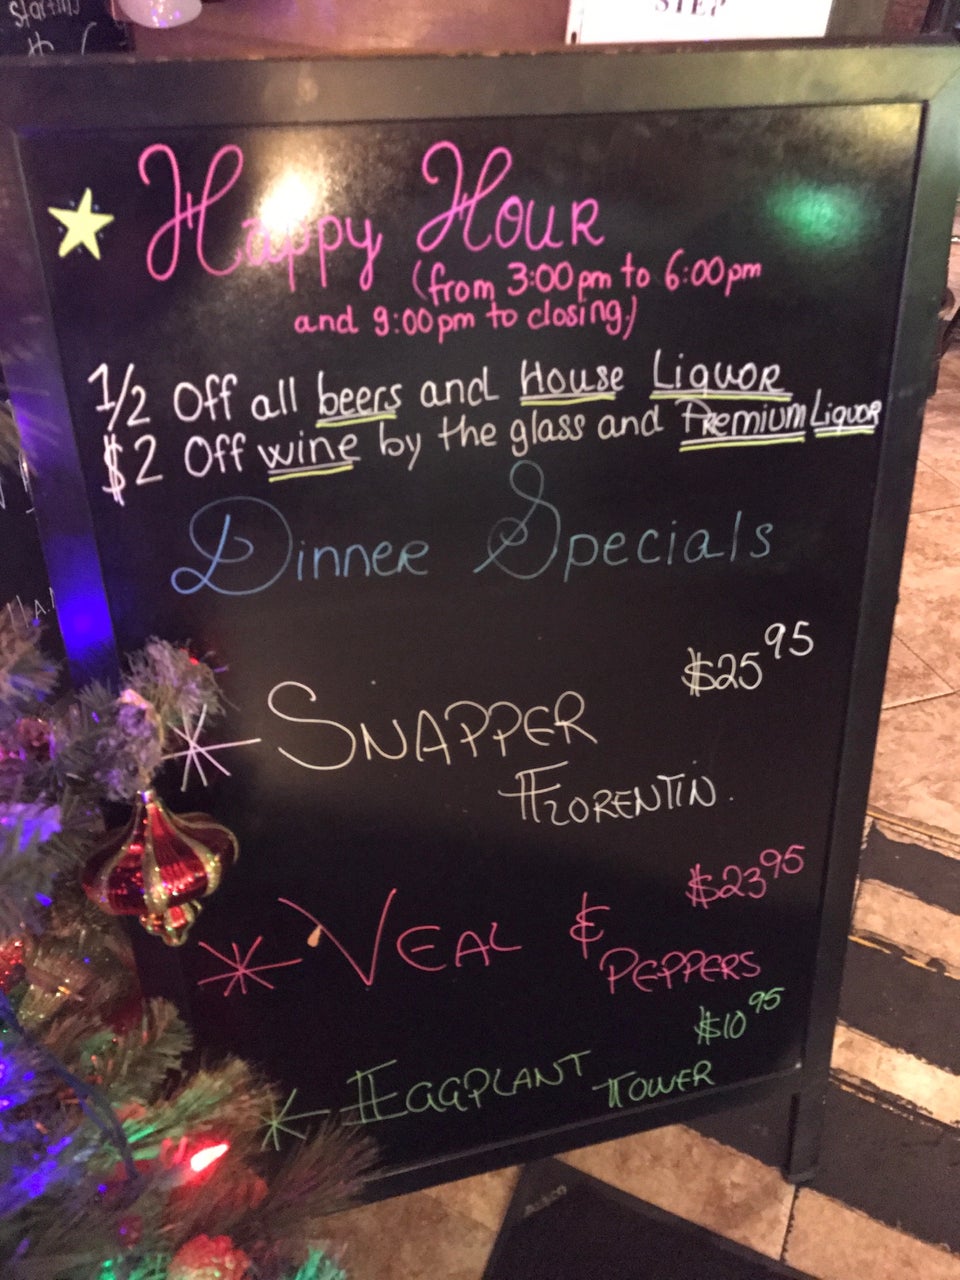 STEP
Happy Hour
(from 3:00pm to 6:00pm
and 9:00pm to closing)
1/2 Off all beers and House Liquor
$2 Off wine by the glass and Premium Liquor
Dinner Specials
$25 95
SNAPPER
FLORENTIN.
$23 95
VEAL &
PEPPERS
$10 95
EGGPLANT TOWER